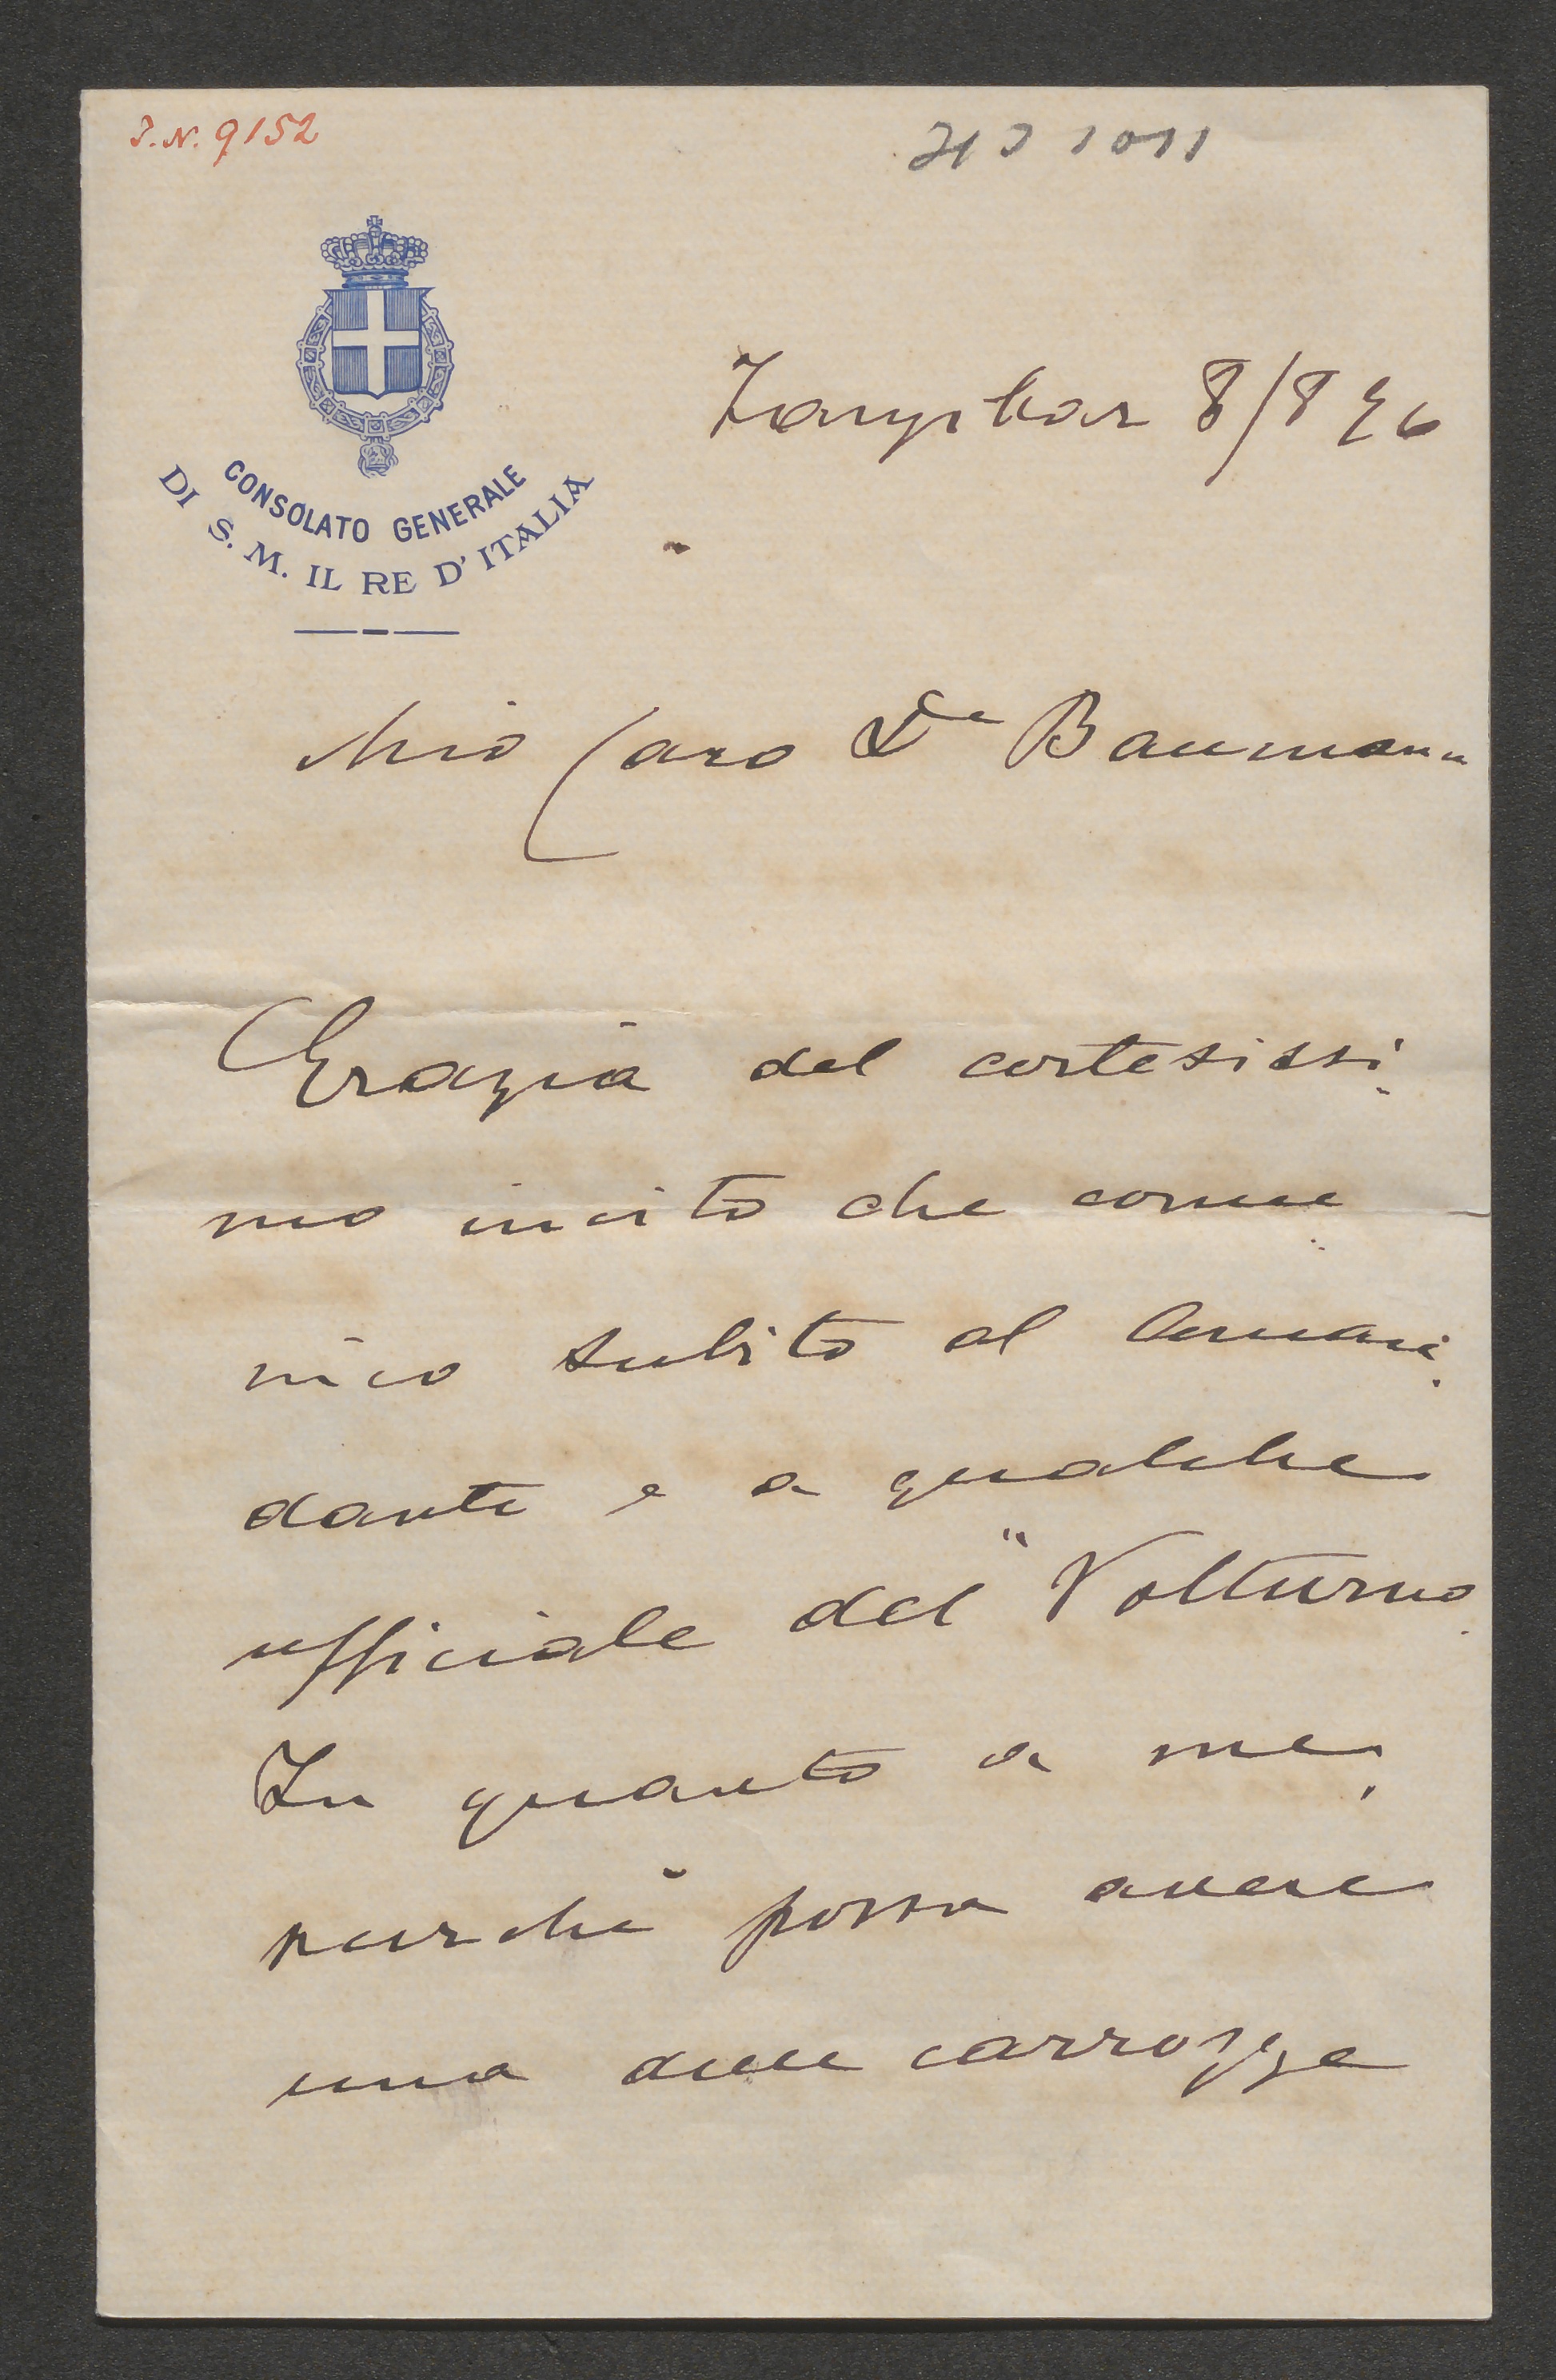 J.N. 9152
CONSOLATO GENERALE
DI S. M. IL RE D'ITALIA
Zanzibar 8/8 96
Mio Caro Dr Baumann
Grazia del cortesissi
mo invito che comu
nico subito al Coman
dante e a qualche
ufficiale del "Volturno
In quanto a me,
purchè possa avere
una due carrozze